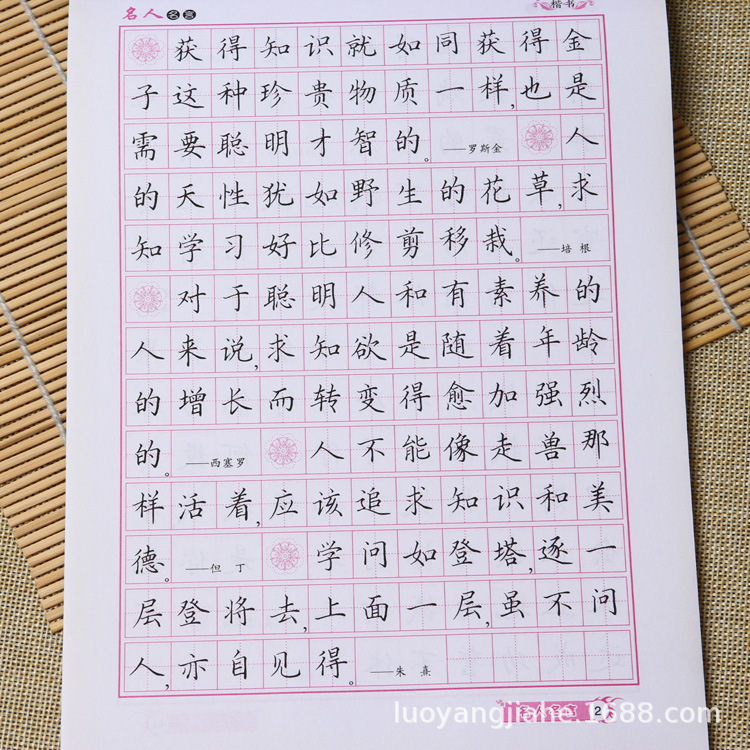 名人名言
楷书
获得知识就如同获得金
子这种珍贵物质一样,也是
需要聪明才智的。——罗斯金 人
的天性犹如野生的花草,求
知学习好比修剪移栽。——培根
对于聪明人和有素养的
人来说,求知欲是随着年龄
的增长而转变得愈加强烈
的。——西塞罗 人不能像走兽那
样活着,应该追求知识和美
德。——但丁 学问如登塔,逐一
层登将去,上面一层,虽不问
人,亦自见得。——朱熹
名人名言 2
luoyangjiahe.1688.com